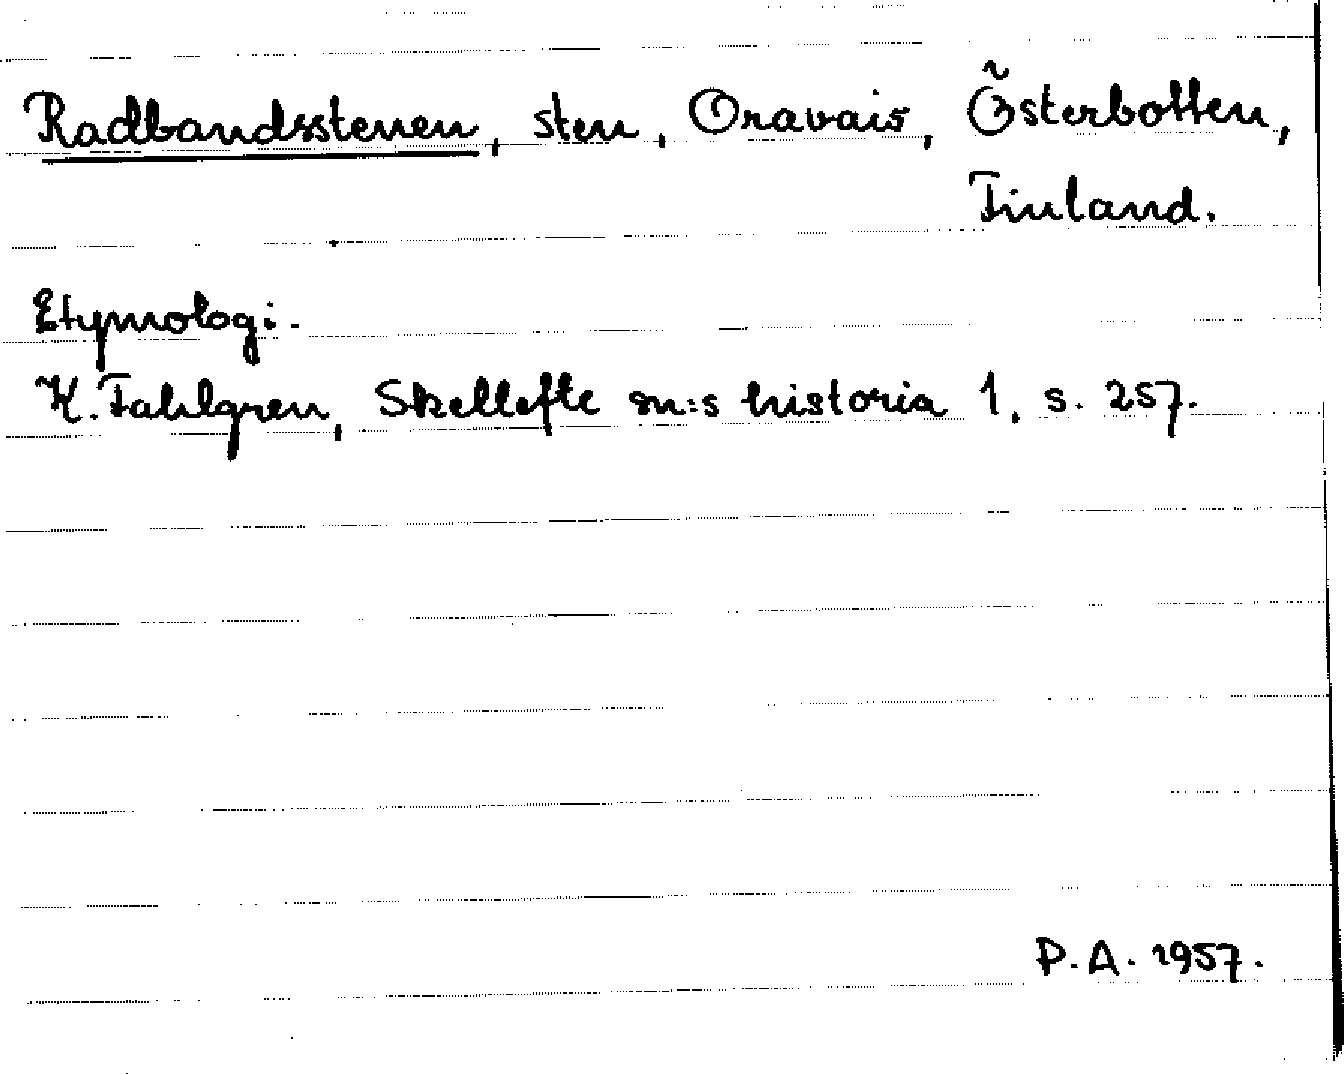 Radbandsstenen, sten, Oravais, Österbotten,
Finland.
Etymologi.
K. Fahlgren, Skellefte sn:s historia 1, s. 257.
P.A. 1957.